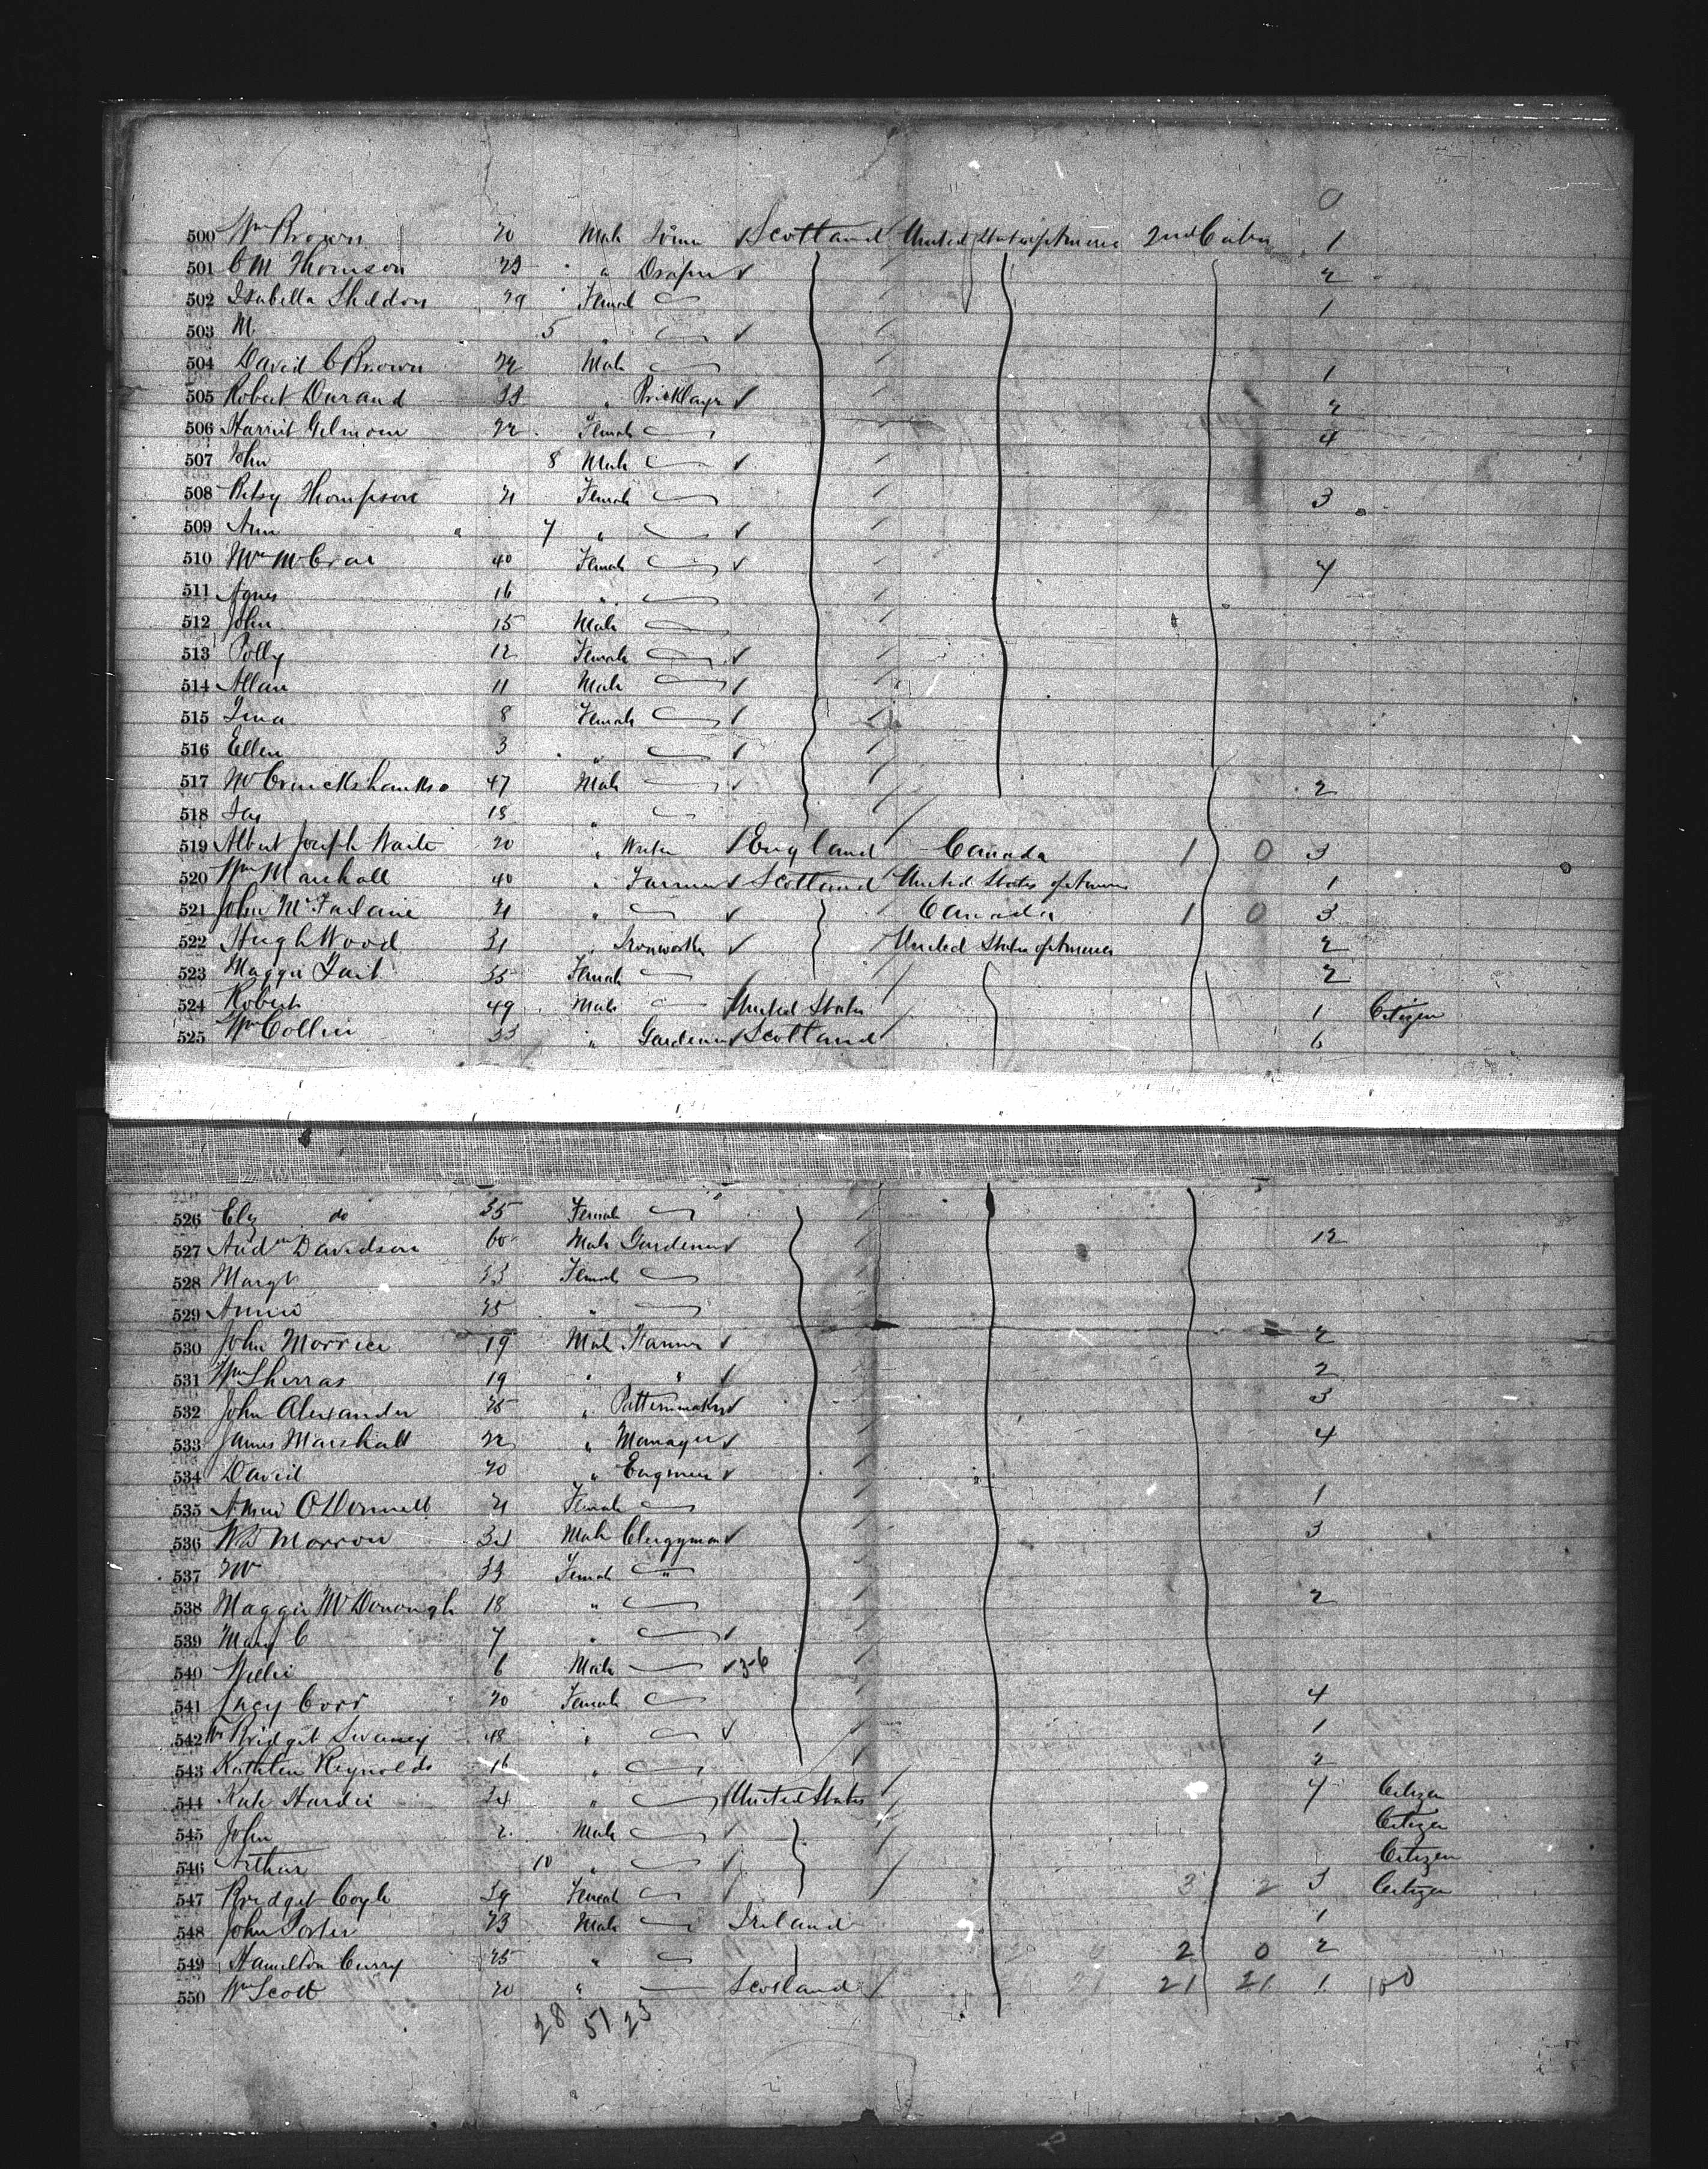 0
500 Wm Brown 20 Male Scotland United States of America 2nd Cabin 1
501 C M Thomson 23 " Draper 2
502 Isabella Sheldon 29 Female 1
503 M 5 "
504 David C Brown 22 Male 1
505 Robert Durand 33 " Bricklayer 2
506 Harriet Gilmour 22 Female 4
507 John 8 Male
508 Betsy Thompson 21 Female 3
509 Ann " 7 "
510 Mrs McCrae 40 Female 7
511 Agnes 16 "
512 John 15 Male
513 Polly 12 Female
514 Allan 11 Male
515 Tina 8 Female
516 Ellen 3 "
517 Cruickshanks 47 Male 2
518 Jas 18 "
519 Albert Joseph Waite 20 " England Canada 1 0 3
520 Wm Marshall 40 " Farmer Scotland United States of America 1
521 John McFarlane 21 " Canada 1 0 3
522 Hugh Wood 31 " Ironworker United States of America 2
523 Maggie Tait 35 Female 2
524 Robert 49 Male United States 1 Citizen
525 Wm Collin 33 " Gardener Scotland 6
526 Elz do 35 Female
527 Andw Davidson 60 Male Gardener 12
528 Margt 53 Female
529 Annie 25 "
530 John Morrice 19 Male Farmer 2
531 Wm Sherras 19 " " 2
532 John Alexander 25 " Patternmaker 3
533 James Marshall 22 " Manager 4
534 David 20 " Engineer
535 Annie O'Donnell 21 Female 1
536 Morrow 34 Male Clergyman 3
537 33 Female "
538 Maggie McDonough 18 " 2
539 Mary C 7 "
540 Willie 6 Male 3-6
541 Lucy Corr 20 Female 4
542 Bridget Swaney 48 " 1
543 Kathleen Reynolds 16 " 2
544 Kate Hardie 34 " United States 7 Citizen
545 John 2 Male Citizen
546 Arthur 10 " Citizen
547 Bridget Coyle 39 Female 3 2 3 Citizen
548 John Porter 23 Male Ireland 1
549 Hamilton Curry 25 " 2 0 2
550 Wm Scott 20 " Scotland 21 21 1 100
28 51 23